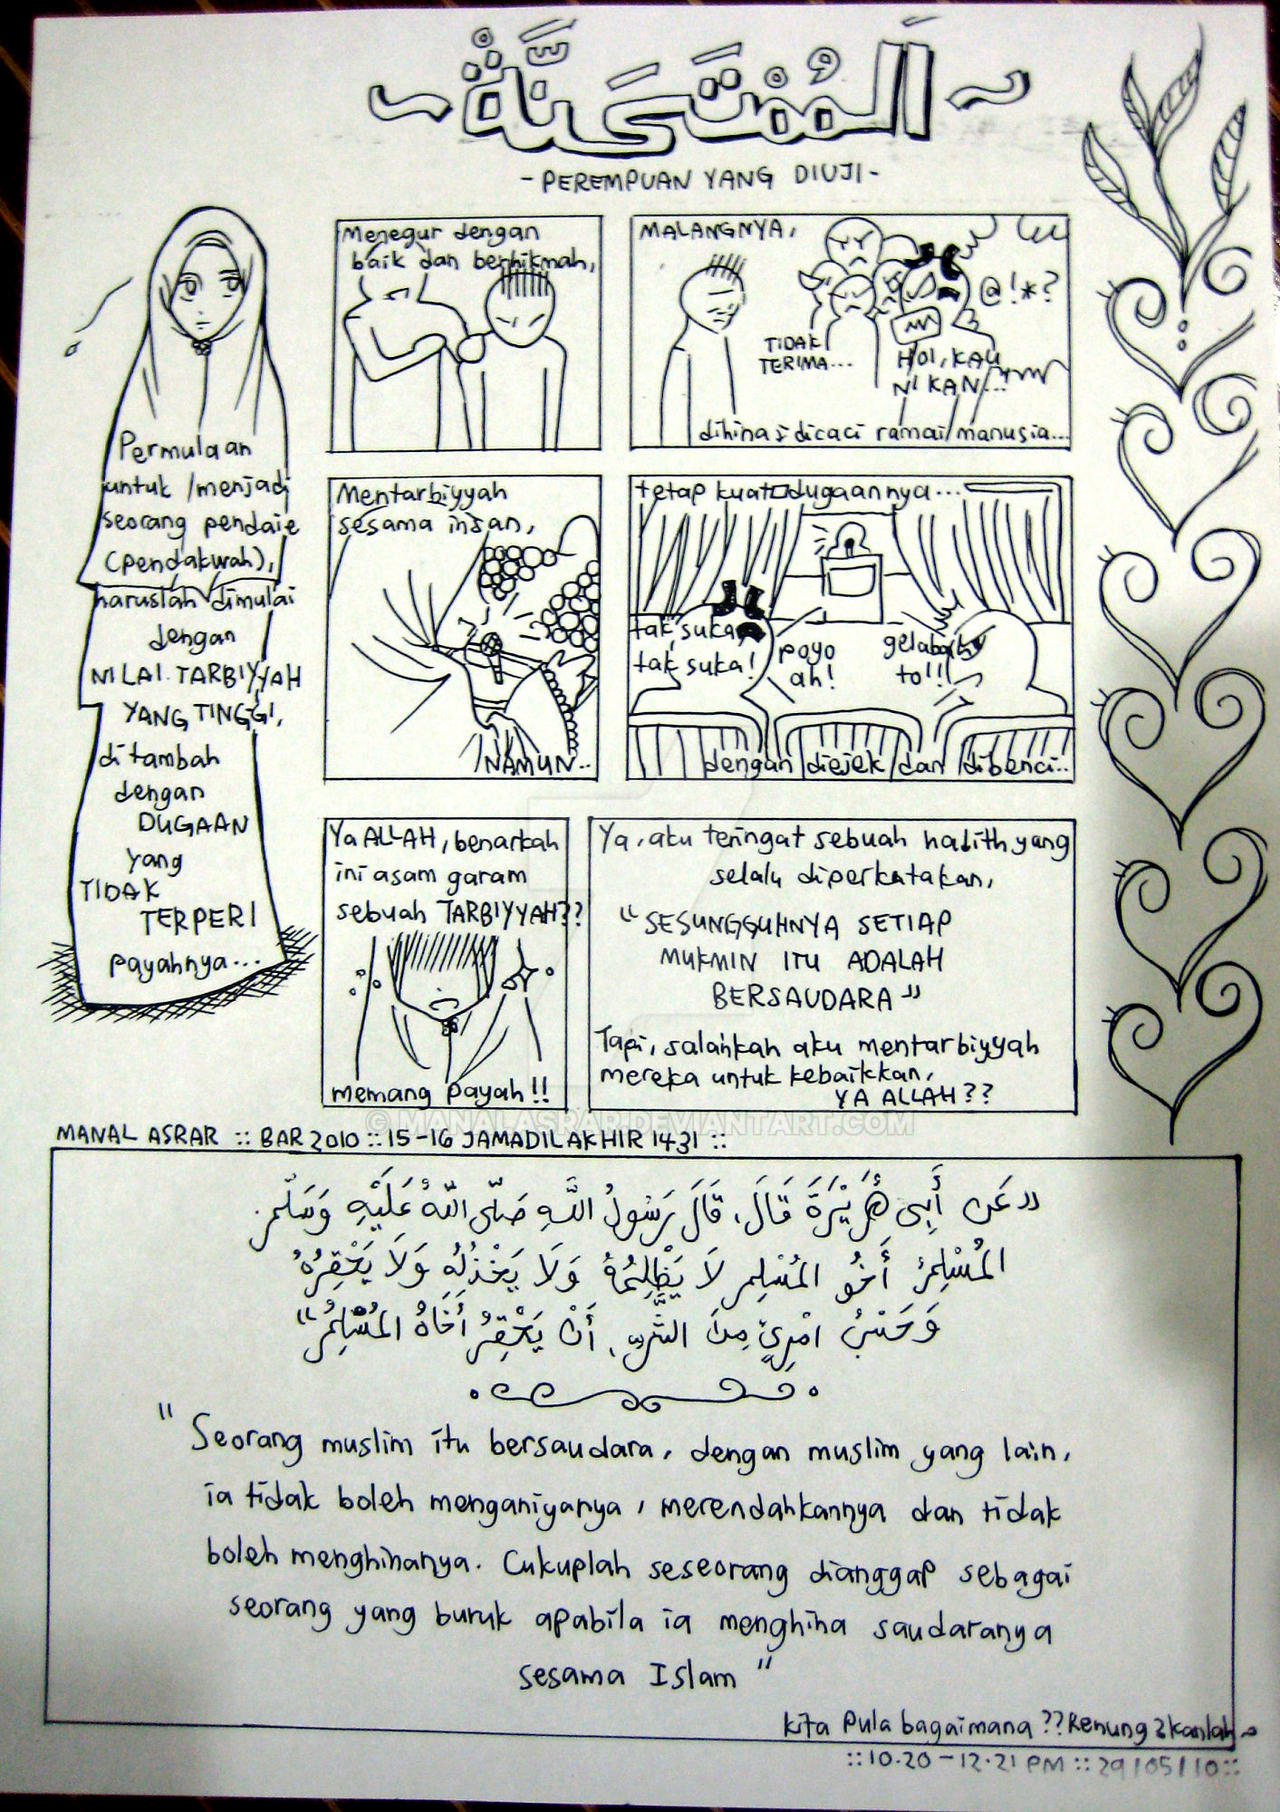 ~ اَلْمُمْتَحَنَّةُ ~
- PEREMPUAN YANG DIUJI -
Permulaan
untuk /menjadi
seorang pendaie
(pendakwah),
haruslah dimulai
dengan
NILAI TARBIYYAH
YANG TINGGI,
ditambah
dengan
DUGAAN
yang
TIDAK
TERPERI
payahnya...
Menegur dengan
baik dan berhikmah,
MALANGNYA,
@!*?
TIDAK
TERIMA...
HOI, KAU
NI KAN...
dihina & dicaci ramai manusia...
Mentarbiyyah
sesama insan,
NAMUN..
tetap kuat dugaannya...
tak suka,
tak suka!
poyo
ah!
to!!!
dengan diejek dan dibenci..
Ya ALLAH, benarkah
ini asam garam
sebuah TARBIYYAH??
memang payah!!
Ya, aku teringat sebuah hadith yang
selalu diperkatakan,
"SESUNGGUHNYA SETIAP
MUKMIN ITU ADALAH
BERSAUDARA"
Tapi, salahkah aku mentarbiyyah
mereka untuk kebaikkan,
YA ALLAH??
© MANALASRAR.DEVIANTART.COM
MANAL ASRAR :: BAR 2010 :: 15-16 JAMADILAKHIR 1431 ::
"عَن أَبِي هُرَيْرَةَ قَالَ، قَالَ رَسُولُ اللَّهِ صَلّى اللّهُ عَلَيْهِ وَسَلّم.
المُسْلِمُ أَخُو المُسْلِم لَا يَظْلِمُهُ وَلَا يَخْذُلُهُ وَلَا يَحْقِرُهُ
وَحَسْبُ امْرِئٍ مِنَ الشَّرِّ، أَنْ يَحْقِرُ أَخَاهُ المُسْلِمُ"
" Seorang muslim itu bersaudara, dengan muslim yang lain,
ia tidak boleh menganiyanya, merendahkannya dan tidak
boleh menghinanya. Cukuplah seseorang dianggap sebagai
seorang yang buruk apabila ia menghina saudaranya
sesama Islam "
kita pula bagaimana ?? Renung2kanlah~
::10.20-12.21 PM :: 29/05/10::